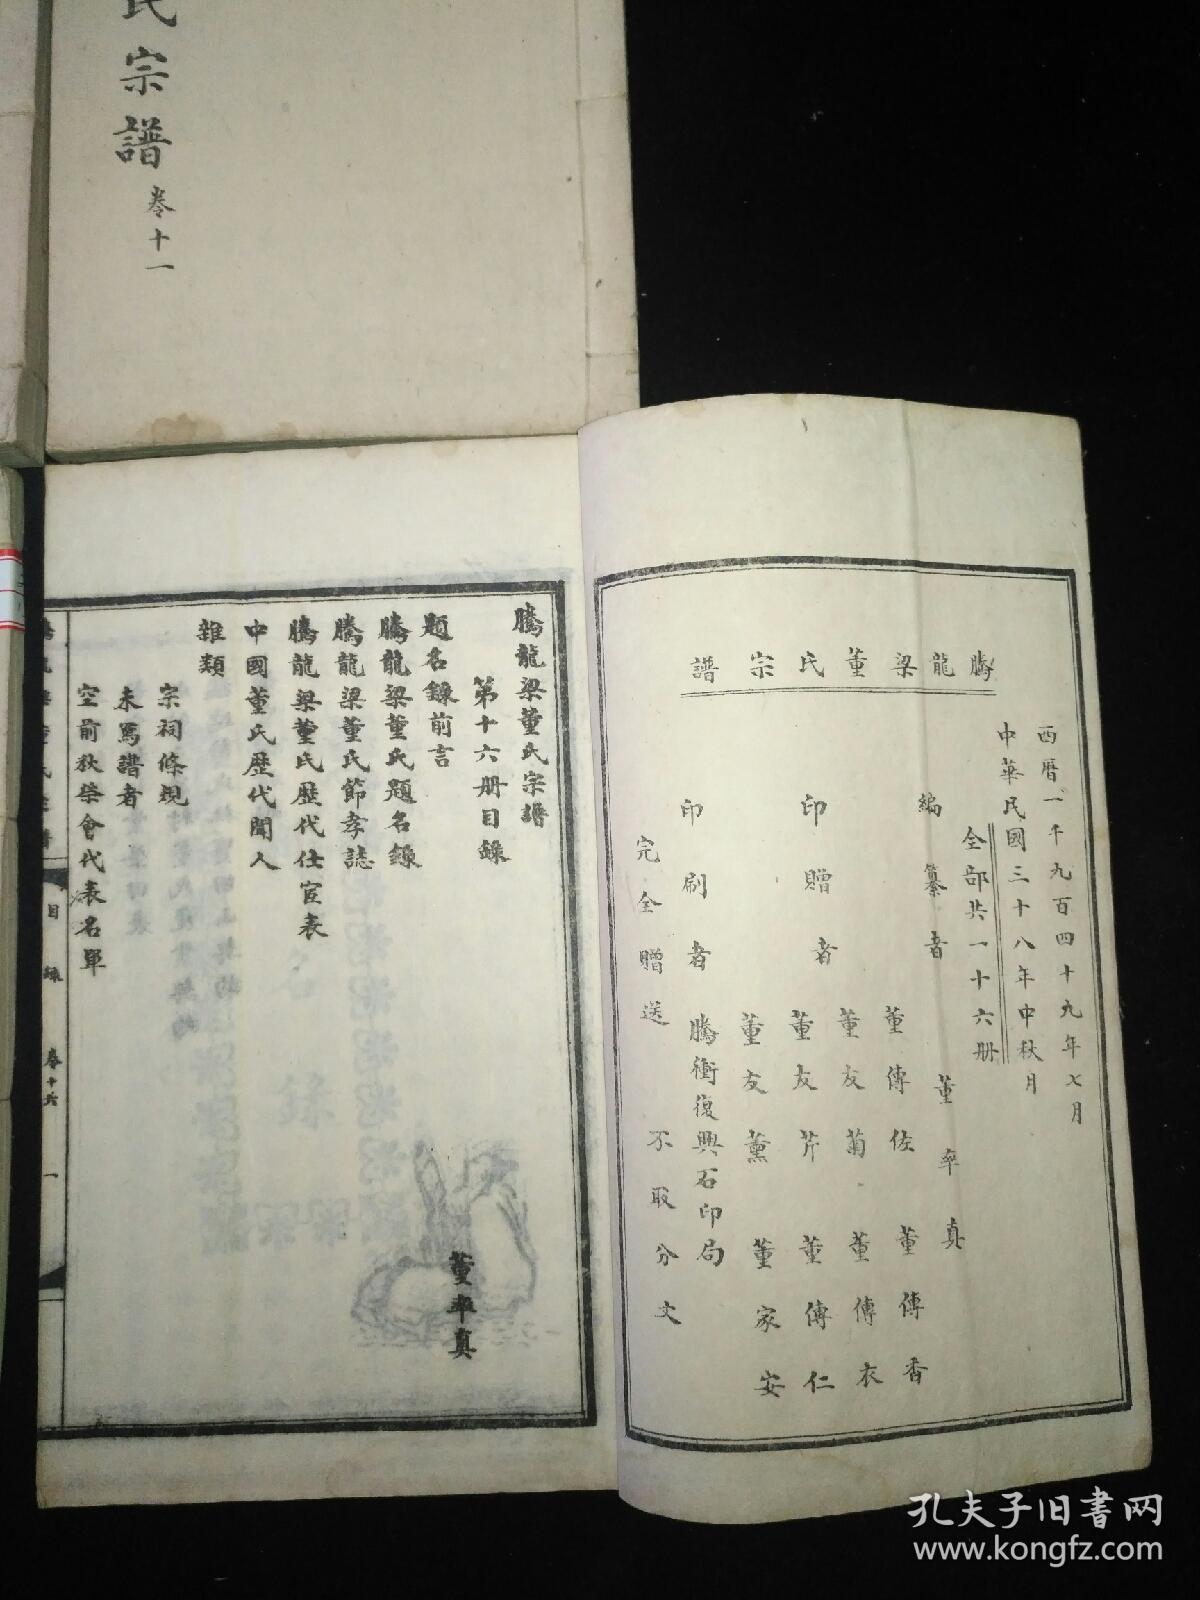 氏宗譜
卷十一
騰龍梁董氏宗譜
西曆一千九百四十九年七月
中華民國三十八年中秋月
全部共一十六册
編纂者 董率真
印贈者
董傳佐 董傳香
董友菊 董傳衣
董友芹 董傳仁
董友薰 董家安
印刷者 騰衝復興石印局
完全贈送 不取分文
騰龍梁董氏宗譜
第十六册目錄
董率真
題名錄前言
騰龍梁董氏題名錄
騰龍梁董氏節孝誌
騰龍梁董氏歷代仕宦表
中國董氏歷代聞人
雜類
宗祠條規
未寫譜者
空前狄柴會代表名單
目錄
卷十六
一
孔夫子旧书网
www.kongfz.com